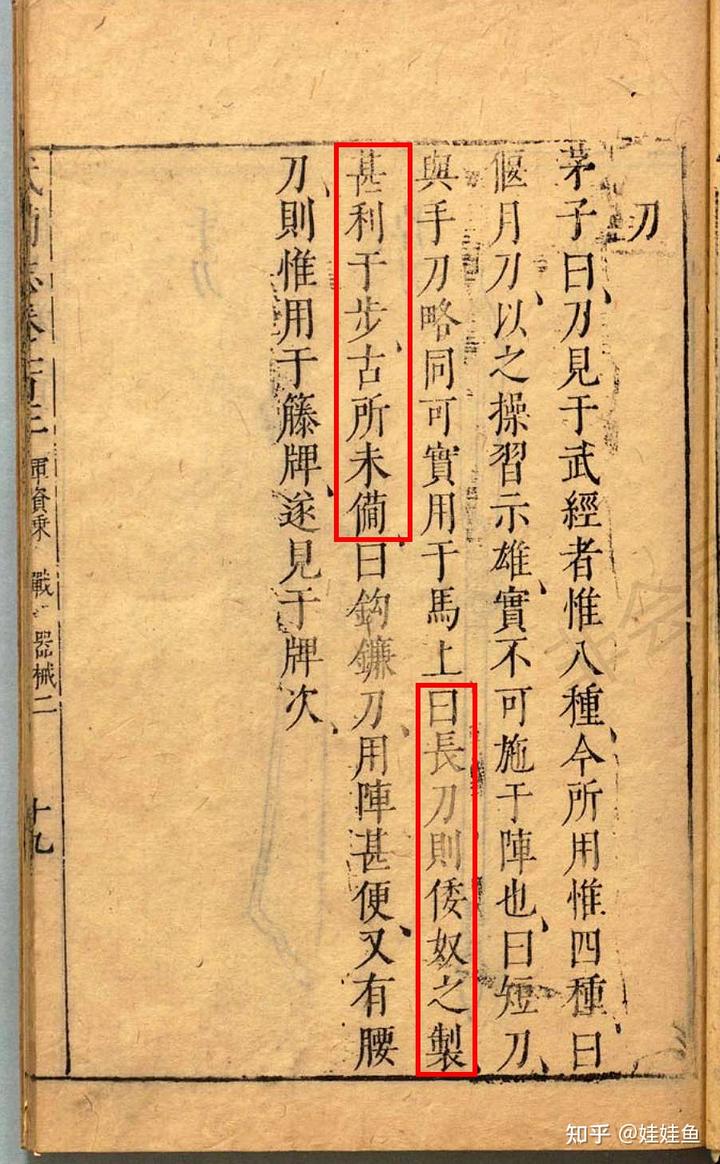 刀
茅子曰刀見于武經者惟八種今所用惟四種曰
偃月刀以之操習示雄實不可施于陣也曰短刀
與手刀略同可實用于馬上曰長刀則倭奴之製
甚利于步古所未備曰鈎鐮刀用陣甚便又有腰
刀則惟用于籐牌遂見于牌次
軍資乘 戰 器械二
十九
知乎 @娃娃鱼